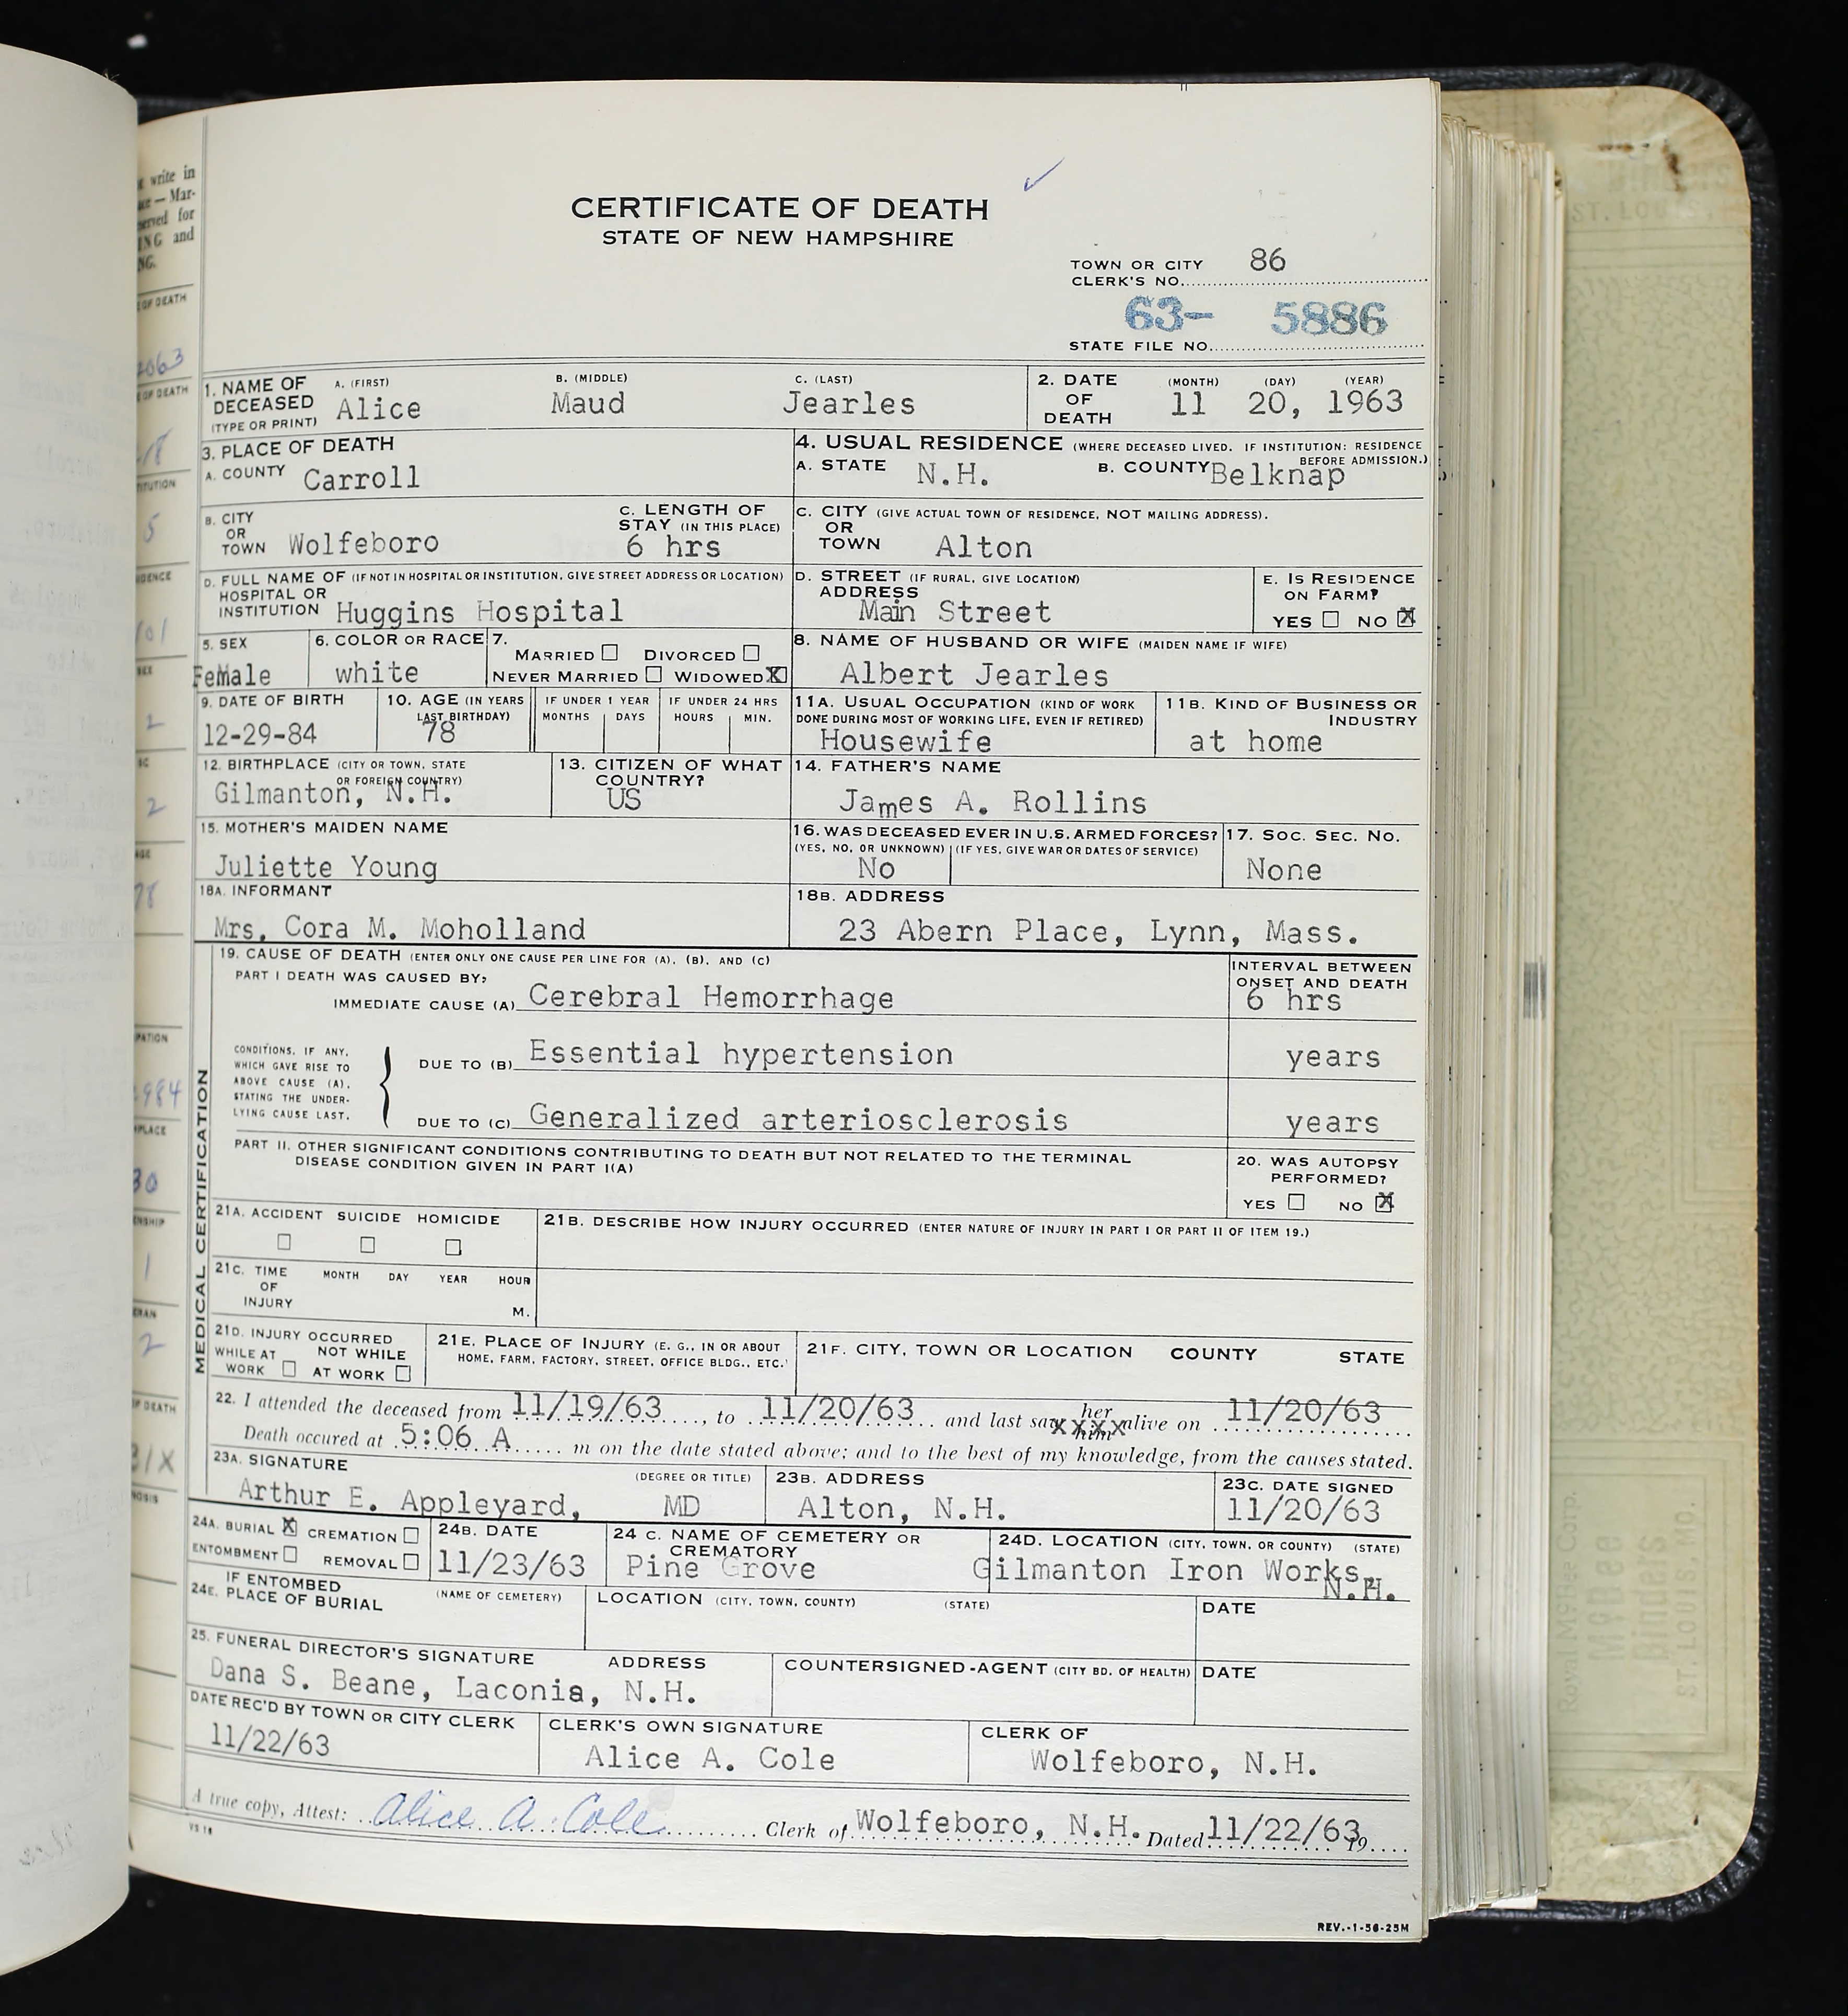 t write in
ace — Mar-
served for
ING and
NG.
CERTIFICATE OF DEATH
STATE OF NEW HAMPSHIRE
TOWN OR CITY 86
CLERK'S NO.
63- 5886
STATE FILE NO.
1. NAME OF DECEASED (TYPE OR PRINT) A. (FIRST) Alice B. (MIDDLE) Maud C. (LAST) Jearles
2. DATE OF DEATH (MONTH) 11 (DAY) 20, (YEAR) 1963
3. PLACE OF DEATH
A. COUNTY Carroll
4. USUAL RESIDENCE (WHERE DECEASED LIVED. IF INSTITUTION: RESIDENCE BEFORE ADMISSION.)
A. STATE N.H. B. COUNTY Belknap
B. CITY OR TOWN Wolfeboro
C. LENGTH OF STAY (IN THIS PLACE) 6 hrs
C. CITY (GIVE ACTUAL TOWN OF RESIDENCE, NOT MAILING ADDRESS). OR TOWN Alton
D. FULL NAME OF (IF NOT IN HOSPITAL OR INSTITUTION, GIVE STREET ADDRESS OR LOCATION) HOSPITAL OR INSTITUTION Huggins Hospital
D. STREET (IF RURAL, GIVE LOCATION) ADDRESS Main Street
E. IS RESIDENCE ON FARM? YES NO X
5. SEX Female
6. COLOR OR RACE white
7. MARRIED DIVORCED
NEVER MARRIED WIDOWED X
8. NAME OF HUSBAND OR WIFE (MAIDEN NAME IF WIFE)
Albert Jearles
9. DATE OF BIRTH 12-29-84
10. AGE (IN YEARS LAST BIRTHDAY) 78
IF UNDER 1 YEAR MONTHS DAYS
IF UNDER 24 HRS HOURS MIN.
11A. USUAL OCCUPATION (KIND OF WORK DONE DURING MOST OF WORKING LIFE, EVEN IF RETIRED) Housewife
11B. KIND OF BUSINESS OR INDUSTRY at home
12. BIRTHPLACE (CITY OR TOWN, STATE OR FOREIGN COUNTRY) Gilmanton, N.H.
13. CITIZEN OF WHAT COUNTRY? US
14. FATHER'S NAME James A. Rollins
15. MOTHER'S MAIDEN NAME Juliette Young
16. WAS DECEASED EVER IN U.S. ARMED FORCES? (YES, NO, OR UNKNOWN) (IF YES, GIVE WAR OR DATES OF SERVICE) No
17. SOC. SEC. NO. None
18A. INFORMANT Mrs. Cora M. Moholland
18B. ADDRESS 23 Abern Place, Lynn, Mass.
MEDICAL CERTIFICATION
19. CAUSE OF DEATH (ENTER ONLY ONE CAUSE PER LINE FOR (A), (B), AND (C)
PART I DEATH WAS CAUSED BY:
INTERVAL BETWEEN ONSET AND DEATH
IMMEDIATE CAUSE (A) Cerebral Hemorrhage 6 hrs
CONDITIONS, IF ANY, WHICH GAVE RISE TO ABOVE CAUSE (A), STATING THE UNDERLYING CAUSE LAST.
DUE TO (B) Essential hypertension years
DUE TO (C) Generalized arteriosclerosis years
PART II. OTHER SIGNIFICANT CONDITIONS CONTRIBUTING TO DEATH BUT NOT RELATED TO THE TERMINAL
DISEASE CONDITION GIVEN IN PART I(A)
20. WAS AUTOPSY PERFORMED? YES NO X
21A. ACCIDENT SUICIDE HOMICIDE
21B. DESCRIBE HOW INJURY OCCURRED (ENTER NATURE OF INJURY IN PART I OR PART II OF ITEM 19.)
21C. TIME OF INJURY MONTH DAY YEAR HOUR M.
21D. INJURY OCCURRED WHILE AT WORK NOT WHILE AT WORK
21E. PLACE OF INJURY (E. G., IN OR ABOUT HOME, FARM, FACTORY, STREET, OFFICE BLDG., ETC.)
21F. CITY, TOWN OR LOCATION COUNTY STATE
22. I attended the deceased from 11/19/63, to 11/20/63 and last saw her xxxx him alive on 11/20/63
Death occured at 5:06 A m on the date stated above; and to the best of my knowledge, from the causes stated.
23A. SIGNATURE (DEGREE OR TITLE) Arthur E. Appleyard, MD
23B. ADDRESS Alton, N.H.
23C. DATE SIGNED 11/20/63
24A. BURIAL X CREMATION
ENTOMBMENT REMOVAL
24B. DATE 11/23/63
24 C. NAME OF CEMETERY OR CREMATORY Pine Grove
24D. LOCATION (CITY, TOWN, OR COUNTY) (STATE) Gilmanton Iron Works, N.H.
24E. IF ENTOMBED PLACE OF BURIAL (NAME OF CEMETERY) LOCATION (CITY, TOWN, COUNTY) (STATE) DATE
25. FUNERAL DIRECTOR'S SIGNATURE ADDRESS
Dana S. Beane, Laconia, N.H.
COUNTERSIGNED-AGENT (CITY BD. OF HEALTH) DATE
DATE REC'D BY TOWN OR CITY CLERK 11/22/63
CLERK'S OWN SIGNATURE Alice A. Cole
CLERK OF Wolfeboro, N.H.
A true copy, Attest: Alice A. Cole Clerk of Wolfeboro, N.H. Dated 11/22/63 19
VS 18
REV.-1-56-25M